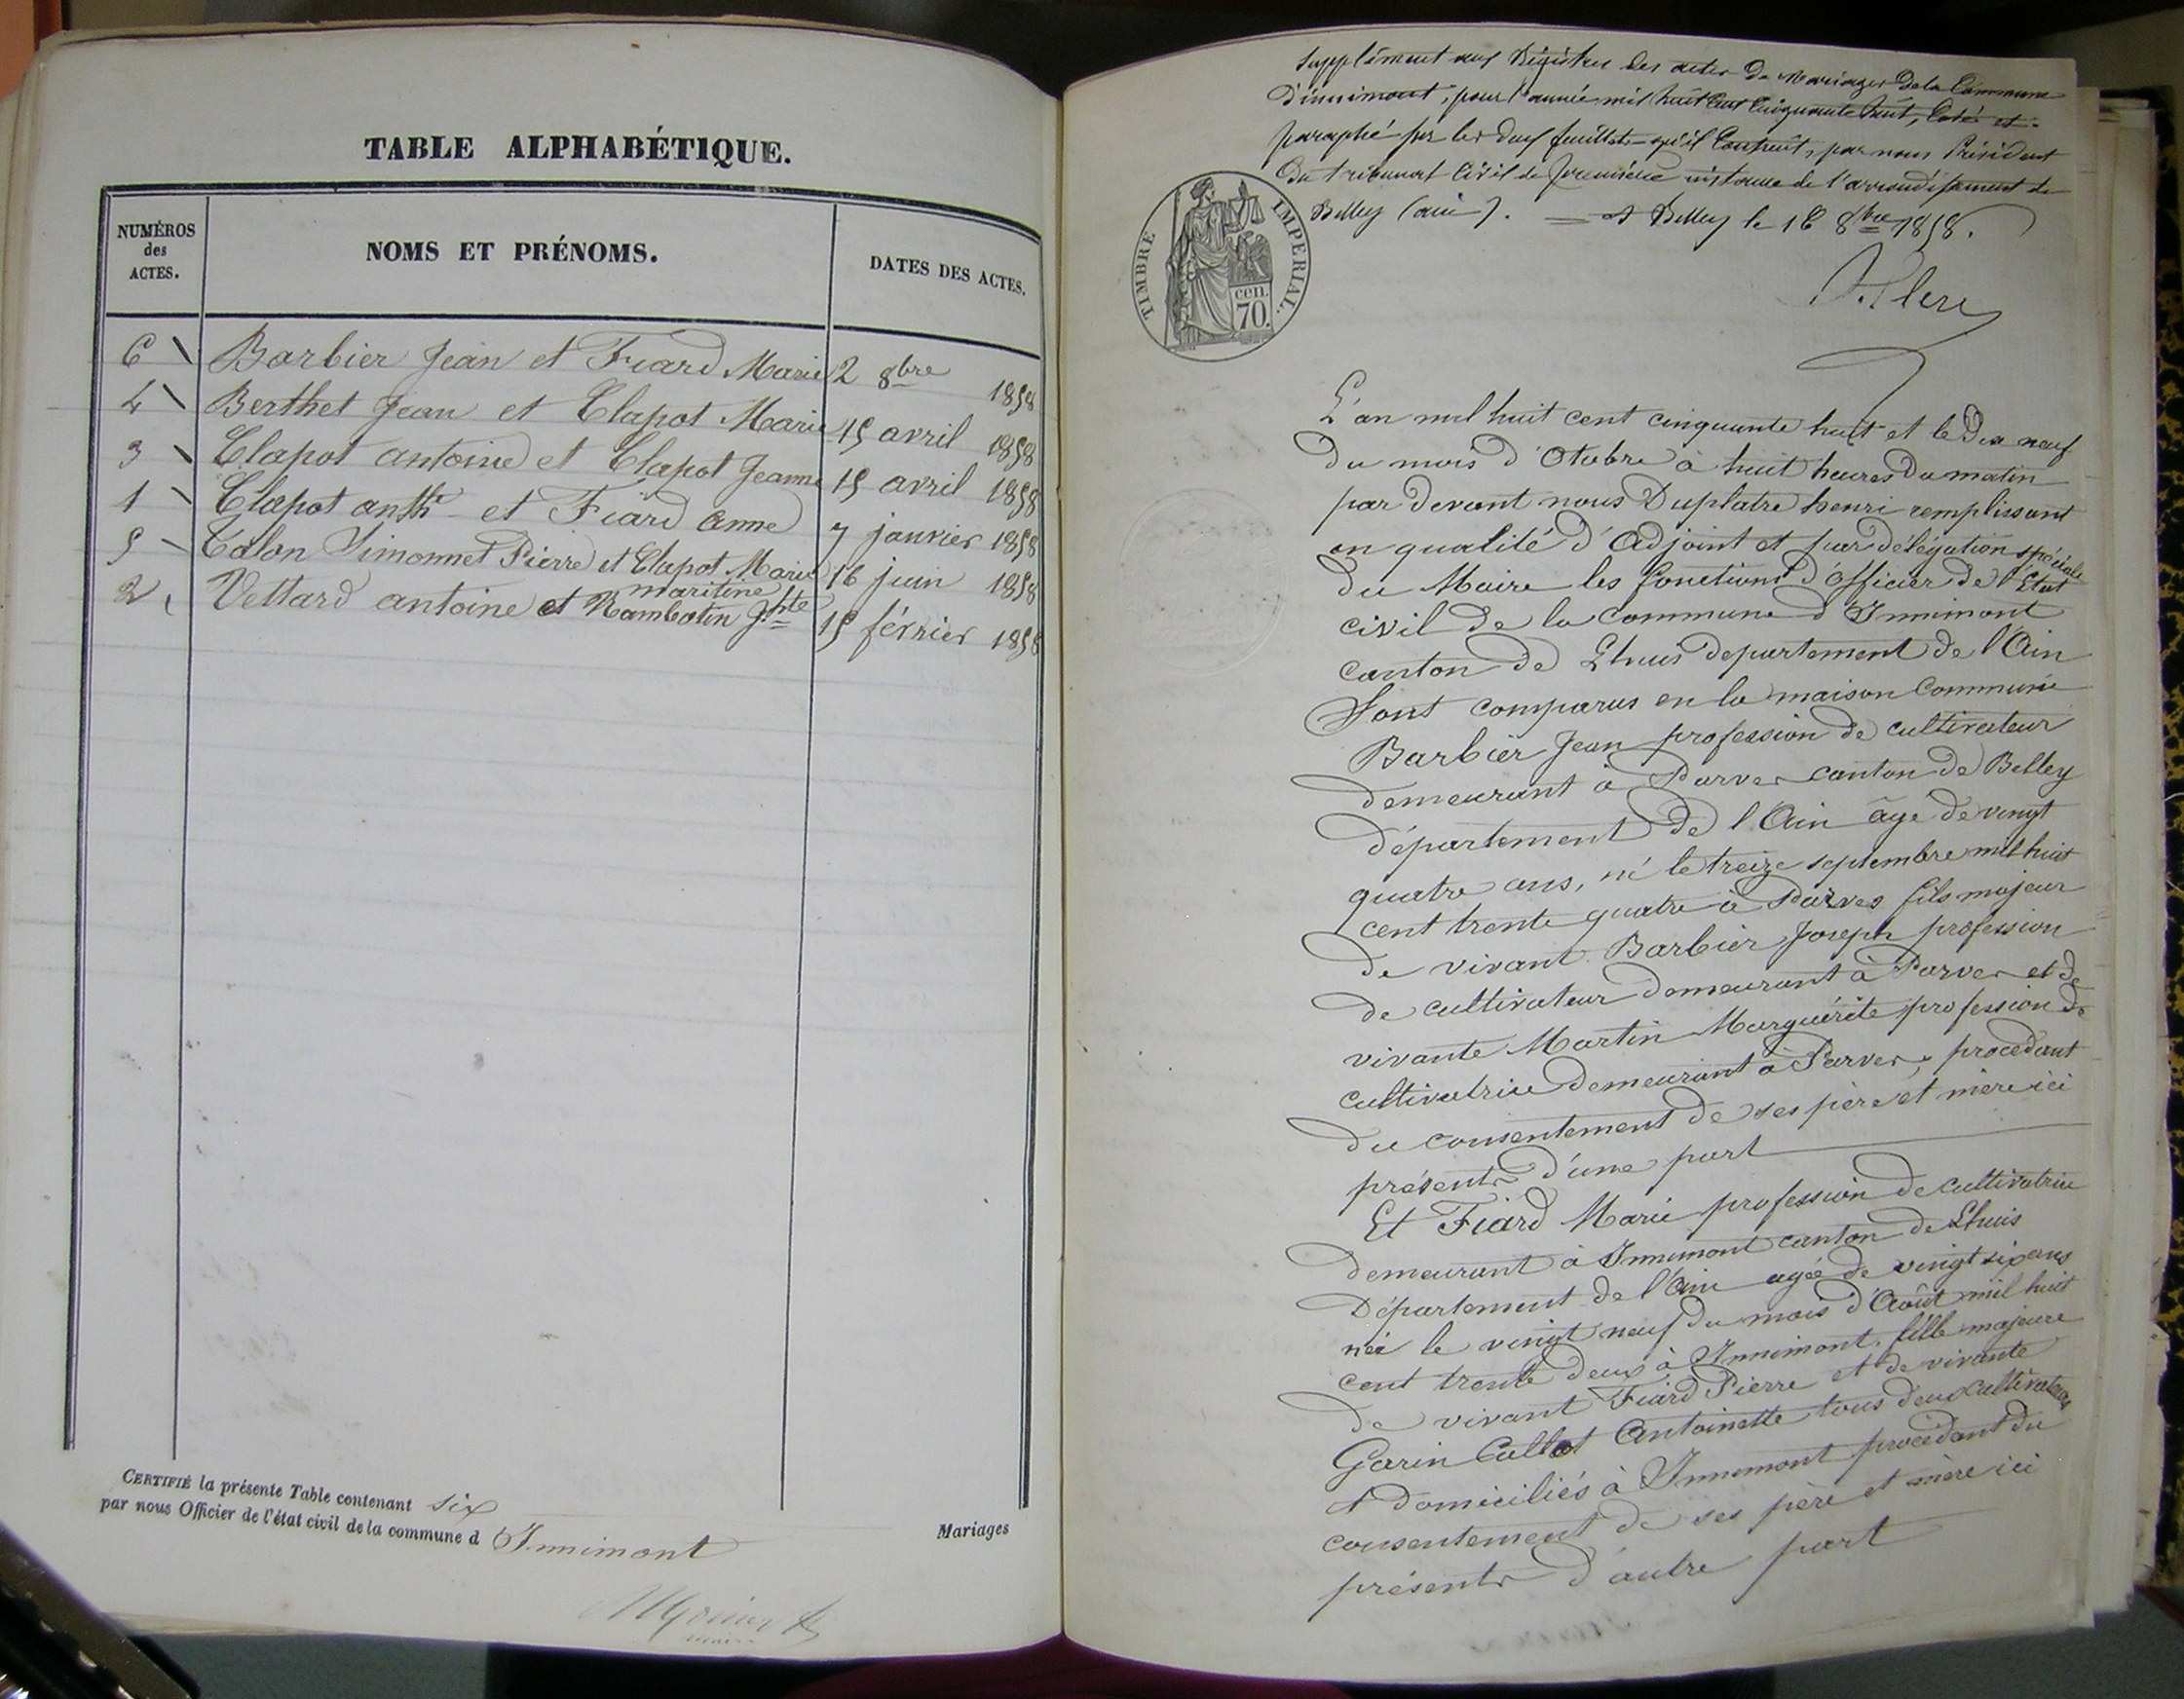 TABLE ALPHABÉTIQUE.
NUMÉROS
des
ACTES.
NOMS ET PRÉNOMS.
DATES DES ACTES.
6 Barbier Jean et Fiard Marie 2 8bre 1858
4 Berthet Jean et Clapot Marie 15 avril 1858
3 Clapot antoine et Clapot Jeanne 15 avril 1858
1 Clapot anth et Fiard anne 7 janvier 1858
5 Colon Simonnet Pierre et Clapot Marie 16 juin 1858
maritine
2 Vettard antoine et Rambotin Jhte 15 février 1858
CERTIFIÉ la présente Table contenant six
par nous Officier de l'état civil de la commune d Innimont
Mariages
maire
Supplément aux Régistres des actes de Mariages de la Commune
d'innimont, pour l'année mil huit cent cinquante huit, Coté et
paraphé sur les deux feuillets qu'il Contient, par nous Président
du tribunal Civil de première instance de l'arrondissement de
Belley (ain). — A Belley le 16 8bre 1858.
TIMBRE IMPERIAL.
cen.
70.
L'an mil huit cent cinquante huit et le dix neuf
du mois d'Otobre à huit heures du matin
par devant nous Duplatre henri remplissant
en qualité d'Adjoint et par délégation spéciale
du Maire les fonctions d'officier de l'Etat
civil de la commune d'Innimont
canton de Lhuis departement de l'Ain
Sont comparus en la maison Commune
Barbier Jean profession de cultivateur
demeurant à Parves canton de Belley
département de l'Ain âgé de vingt
quatre ans, né le treize septembre mil huit
cent trente quatre à Parves fils majeur
de vivant Barbier Joseph profession
de cultivateur demeurant à Parves et de
vivante Martin Marguérite profession de
cultivatrice demeurant à Parves, procédant
du consentement de ses père et mère ici
présents d'une part
Et Fiard Marie profession de cultivatrice
demeurant à Innimont canton de Lhuis
Département de l'Ain agée de vingt six ans
née le vingt neuf du mois d'Août mil huit
cent trente deux à Innimont, fille majeure
de vivant Fiard Pierre et de vivante
Garin Callot Antoinette tous deux cultivateurs
et domiciliés à Innimont procédant du
consentement de ses père et mère ici
présents d'autre part